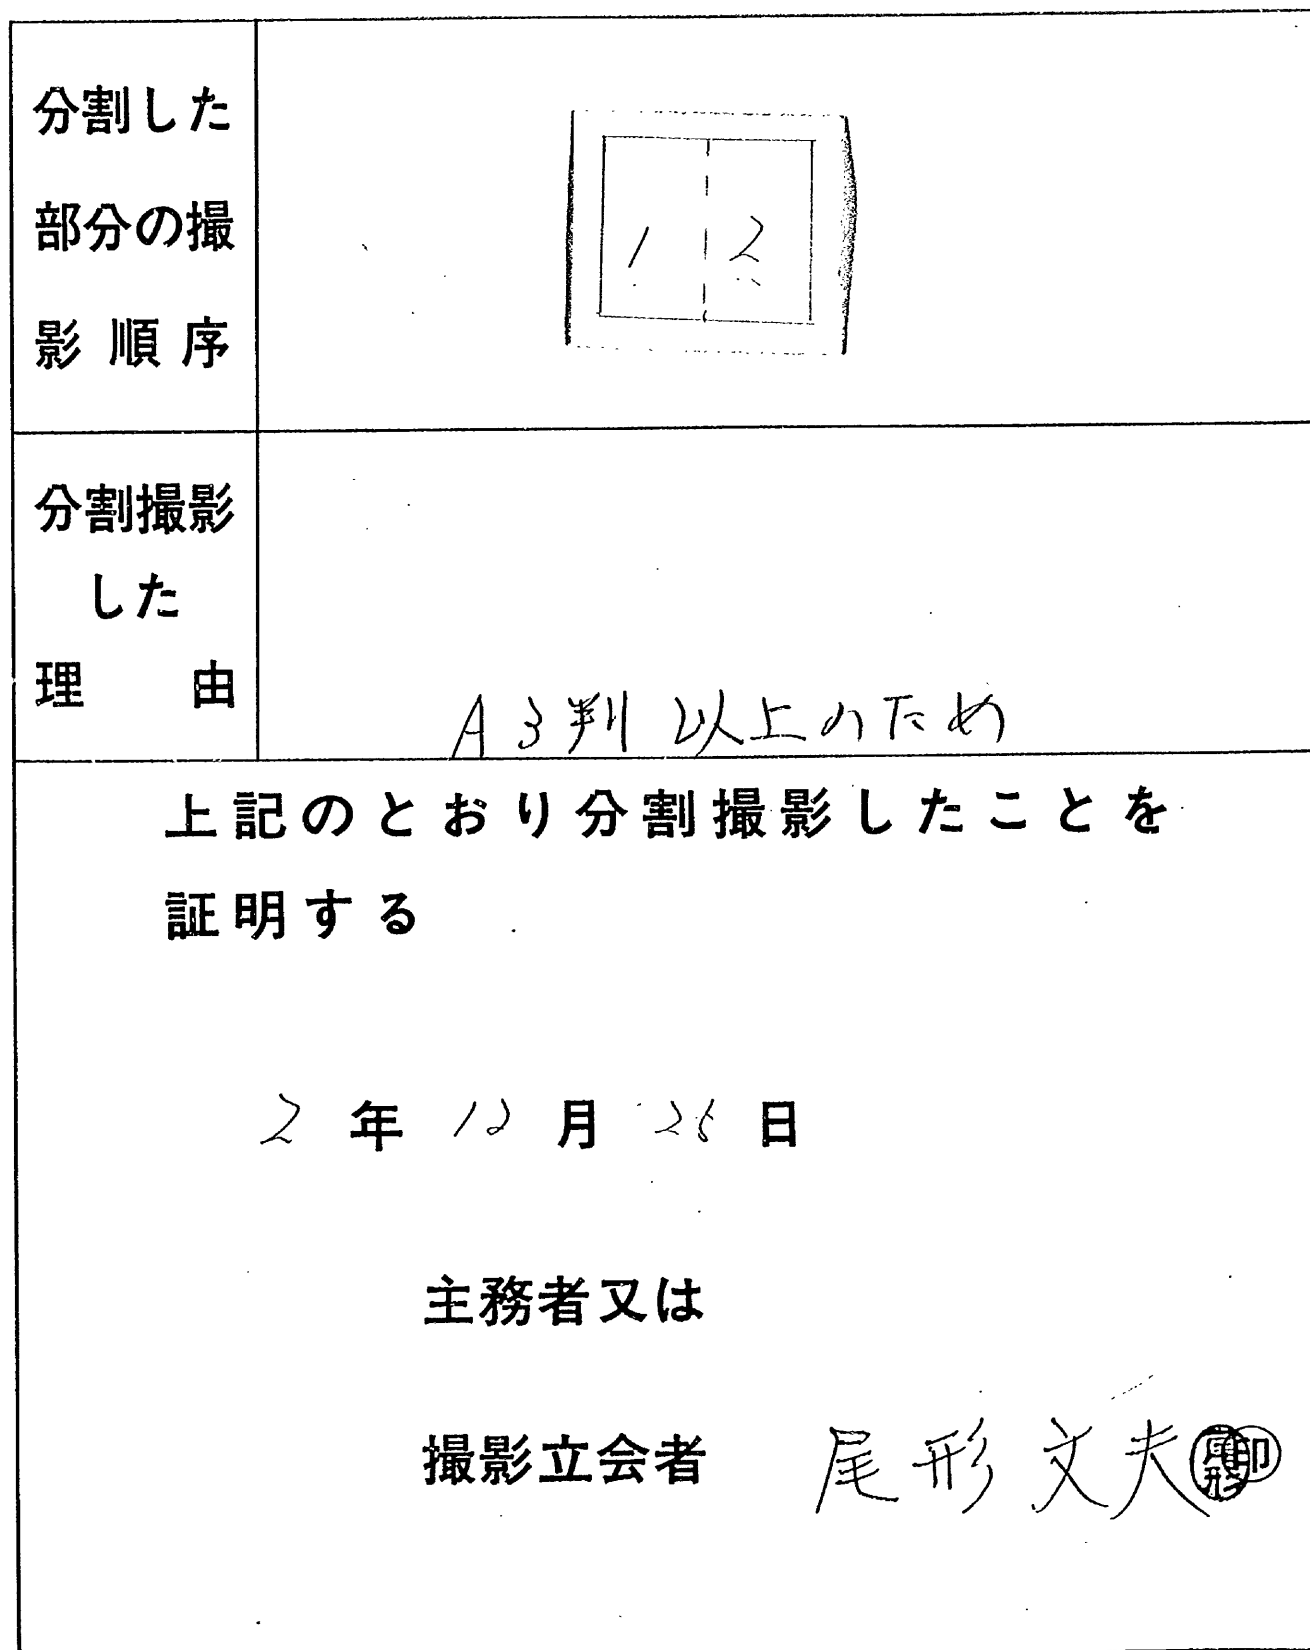 分割した
部分の撮
影順序
1 2
分割撮影
した
理由
A3判以上のため
上記のとおり分割撮影したことを
証明する
2年12月 日
主務者又は
撮影立会者 尾形文夫 尾形 印